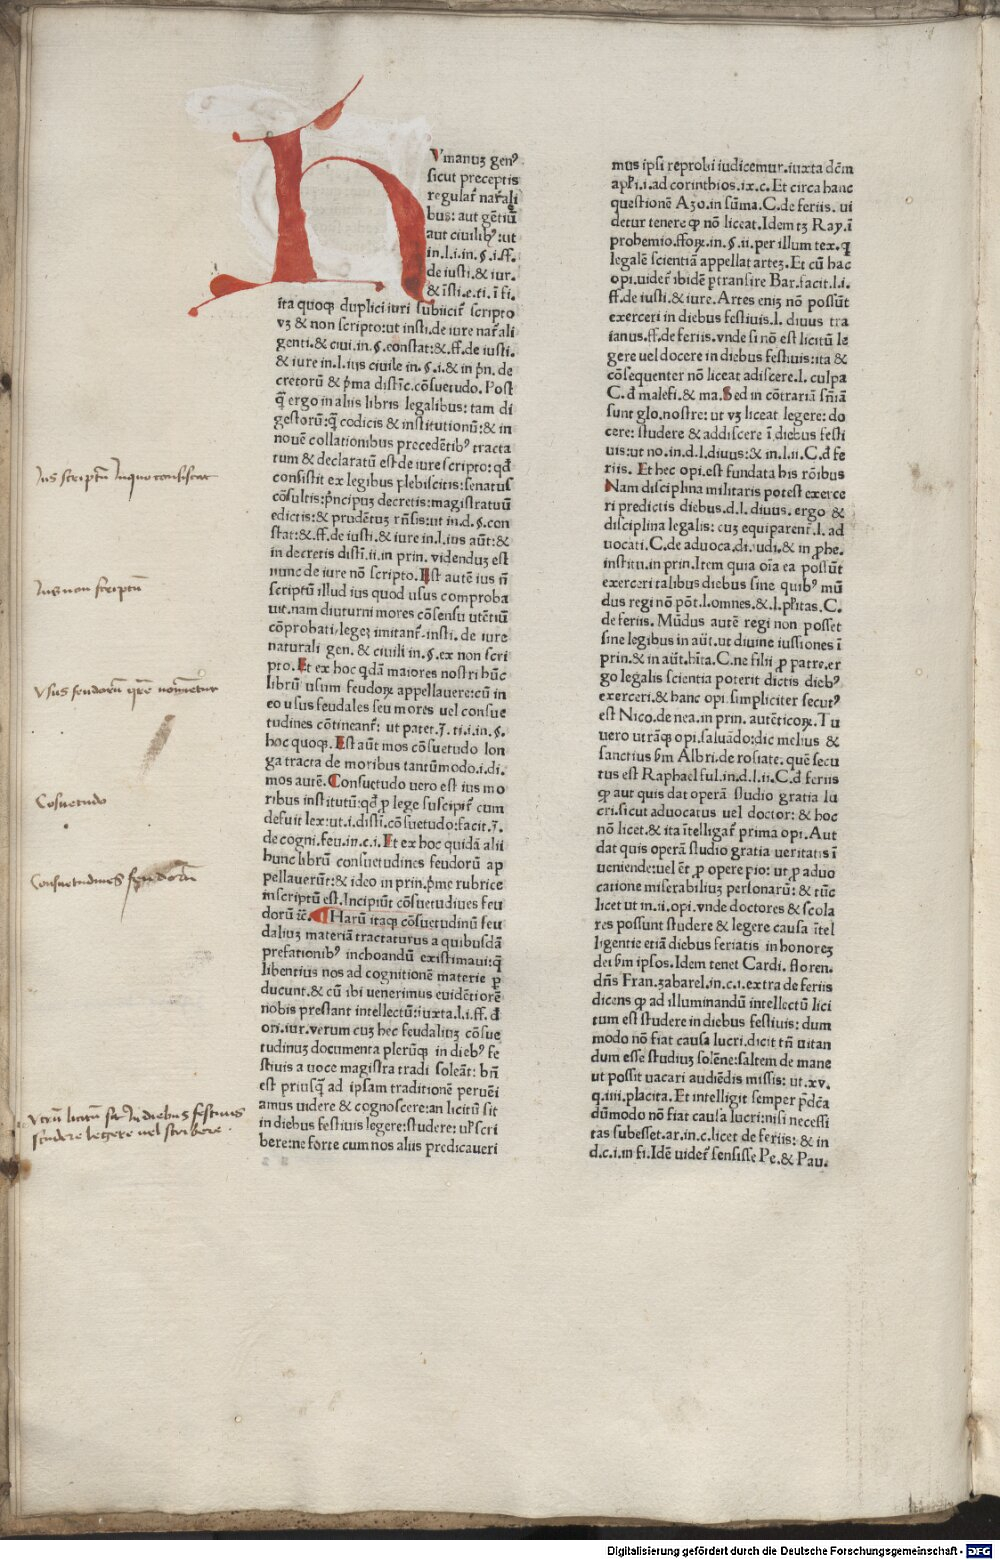 H
Vmanuʒ genꝰ
sicut preceptis
regulaꝛ̃ naꝛ̃ali
bus: aut gētiū
aut ciuilibꝰ:ut
in.l.i.in.§.i.ff.
de iusti.& iur.
& īsti.e.ti.ī fi.
ita quoqꝫ duplici iuri subiiciť scripto
vʒ & non scripto:ut insti.de iure naꝛ̃ali
genti.& ciui.in.§.constat:&.ff.de iusti.
& iure in.l.ius ciuile in.§.i.& in p̄n. de
cretorū & p̄ma distīc.cōsuetudo. Post
q̄ ergo in aliis libris legalibus: tam di
gestorū:q̄ codicis & institutionū:& in
nouē collationibus precedētibꝰ tracta
tum & declaratū est de iure scripto:qđ
consistit ex legibus plebiscitis:senatus
cōsultis:p̄ncipuʒ decretis:magistratuū
edictis:& prudētuʒ rn̄sis:ut in.d.§.con
stat:&.ff.de iusti.& iure in.l.ius aūt:&
in decretis distī.ii.in prin. videnduʒ est
nunc de iure nō scripto. Est autē ius n̄
scriptū illud ius quod usus comproba
uit.nam diuturni mores cōsensu utētiū
cōprobati/legeʒ imitanť.insti.de iure
naturali gen. & ciuili in.§.ex non scri
pto. Et ex hoc qđā maiores nostri hūc
librū usum feudoꝝ appellauere:cū in
eo usus feudales seu mores uel consue
tudines cōtineanť: ut patet.J. ti.i.in.§.
hoc quoqꝫ. Est aūt mos cōsuetudo lon
ga tracta de moribus tantūmodo.i.di.
mos autē. Consuetudo uero est ius mo
ribus institutū:qđ p lege suscipiť cum
defuit lex:ut.i.distī.cōsuetudo:facit.J.
de cogni.feu.in.c.i. Et ex hoc quidā alii
hunc librū consuetudines feudorū ap
pellauerūt:& ideo in prin.p̄me rubrice
inscriptū est.Incipiūt cōsuetudiues feu
dorū ⁊c̄. ¶ Harū itaqꝫ cōsuetudinū feu
daliuʒ materiā tractaturus a quibusdā
prefationibꝰ inchoandū existimaui:q̄
libentius nos ad cognitionē materie ꝑ
ducunt.& cū ibi uenerimus euidētiorē
nobis prestant intellectū:iuxta.l.i.ff.đ
ori.iur.verum cuʒ hec feudaliuʒ cōsue
tudinuʒ documenta plerūqꝫ in diebꝰ fe
stiuis a uoce magistra tradi soleāt: bn̄
est priusq̄ ad ipsam traditionē peruēi
amus uidere & cognoscere:an licitū sit
in diebus festiuis legere:studere: ul̕ scri
bere:ne forte cum nos aliis predicaueri
mus ipsi reprobi iudicemur.iuxta dc̄m
apl̕i.i.ad corinthios.ix.c. Et circa hanc
questionē Aʒo.in sūma.C.de feriis. ui
detur tenere ꝙ nō liceat.Idem tʒ Ray.ī
prohemio.ffoꝝ.in.§.ii.per illum tex.q̨
legalē scientiā appellat arteʒ. Et cū hac
opi.uideť ibidē ptransire Bar.facit.l.i.
ff.de iusti.& iure. Artes eniʒ nō possūt
exerceri in diebus festiuis.l. diuus tra
ianus.ff.de feriis.vnde si nō est licitū le
gere uel docere in diebus festiuis:ita &
cōsequenter nō liceat adiscere.l. culpa
C.đ malefi.& ma. Sed in cōtrariā sn̄iā
sunt glo.nostre: ut vʒ liceat legere: do
cere: studere & addiscere ī diebus festi
uis:ut no.in.d.l.diuus:& in.l.ii.C.đ fe
riis. Et hec opi.est fundata his rōibus
Nam disciplina militaris potest exerce
ri predictis diebus.d.l. diuus. ergo &
disciplina legalis: cuʒ equiparenť.l. ad
uocati.C.de aduoca.di.iudi.& in ꝓhe.
institu.in prin.Item quia oīa ea possūt
exerceri talibus diebus sine quibꝰ mū
dus regi nō pōt.l.omnes.&.l.pl̕itas.C.
de feriis. Mūdus autē regi non posset
sine legibus in aūt.ut diuine iussiones ī
prin.& in aūt.hīta.C.ne filii ꝓ patre.er
go legalis scientia poterit dictis diebꝰ
exerceri.& hanc opi.simpliciter secutꝰ
est Nico.de nea.in prin. autēticoꝝ. Tu
uero utrāqꝫ opi.saluādo:dic melius &
sanctius bm Albri.de rosiate. quē secu
tus est Raphael ful.in.d.l.ii.C.đ feriis
ꝙ aut quis dat operā studio gratia lu
cri.sicut aduocatus uel doctor: & hoc
nō licet.& ita ītelligať prima opi. Aut
dat quis operā studio gratia ueritatis ī
ueniende:uel ēt ꝓ opere pio: ut ꝓ aduo
catione miserabiliuʒ personarū: & tūc
licet ut in.ii.opi.vnde doctores & scola
res possunt studere & legere causa ītel
ligentie etiā diebus feriatis in honoreʒ
dei bm ipsos. Idem tenet Cardi. floren.
dn̄s Fran.ʒabarel.in.c.i.extra de feriis
dicens ꝙ ad illuminandū intellectū lici
tum est studere in diebus festiuis: dum
modo nō fiat causa lucri.dicit tn̄ uitan
dum esse studiuʒ solēne:saltem de mane
ut possit uacari audiēdis missis: ut.xv.
q.iiii.placita. Et intelligit semper p̄dc̄a
dūmodo nō fiat causa lucri:nisi necessi
tas subesset.ar.in.c.licet de feriis: & in
d.c.i.in fi.Idē uideť sensisse Pe.& Pau.
Jus scriptū Inquo consistat
Jus non scriptū
Vsus feudorū qr̄e nomīetur
Cōsuetudo
Consuetudines feudorū
Vtrū licitū sit In diebuʒ festiuis
studere legere uel scribere.
Digitalisierung gefördert durch die Deutsche Forschungsgemeinschaft - DFG